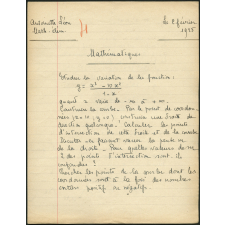 Antoinette Léon
Math-élem.
le 8 février
1925
Mathématiques
Étudier la variation de la fonction.
y =
1-x
quand x varie de -∞ à +∞.
Construire la courbe. Par le point de coordon-
nées (x=0, y=0) on mène une droite de
direction quelconque. Calculer les points
d'intersection de cette droite et de la courbe.
Discuter en faisant varier la pente m
de la droite. Pour quelles valeurs de m
2 des points d'intersection sont-ils
confondus ?
Chercher les points de la courbe dont les
coordonnées sont à la fois des nombres
entiers positifs ou négatifs.